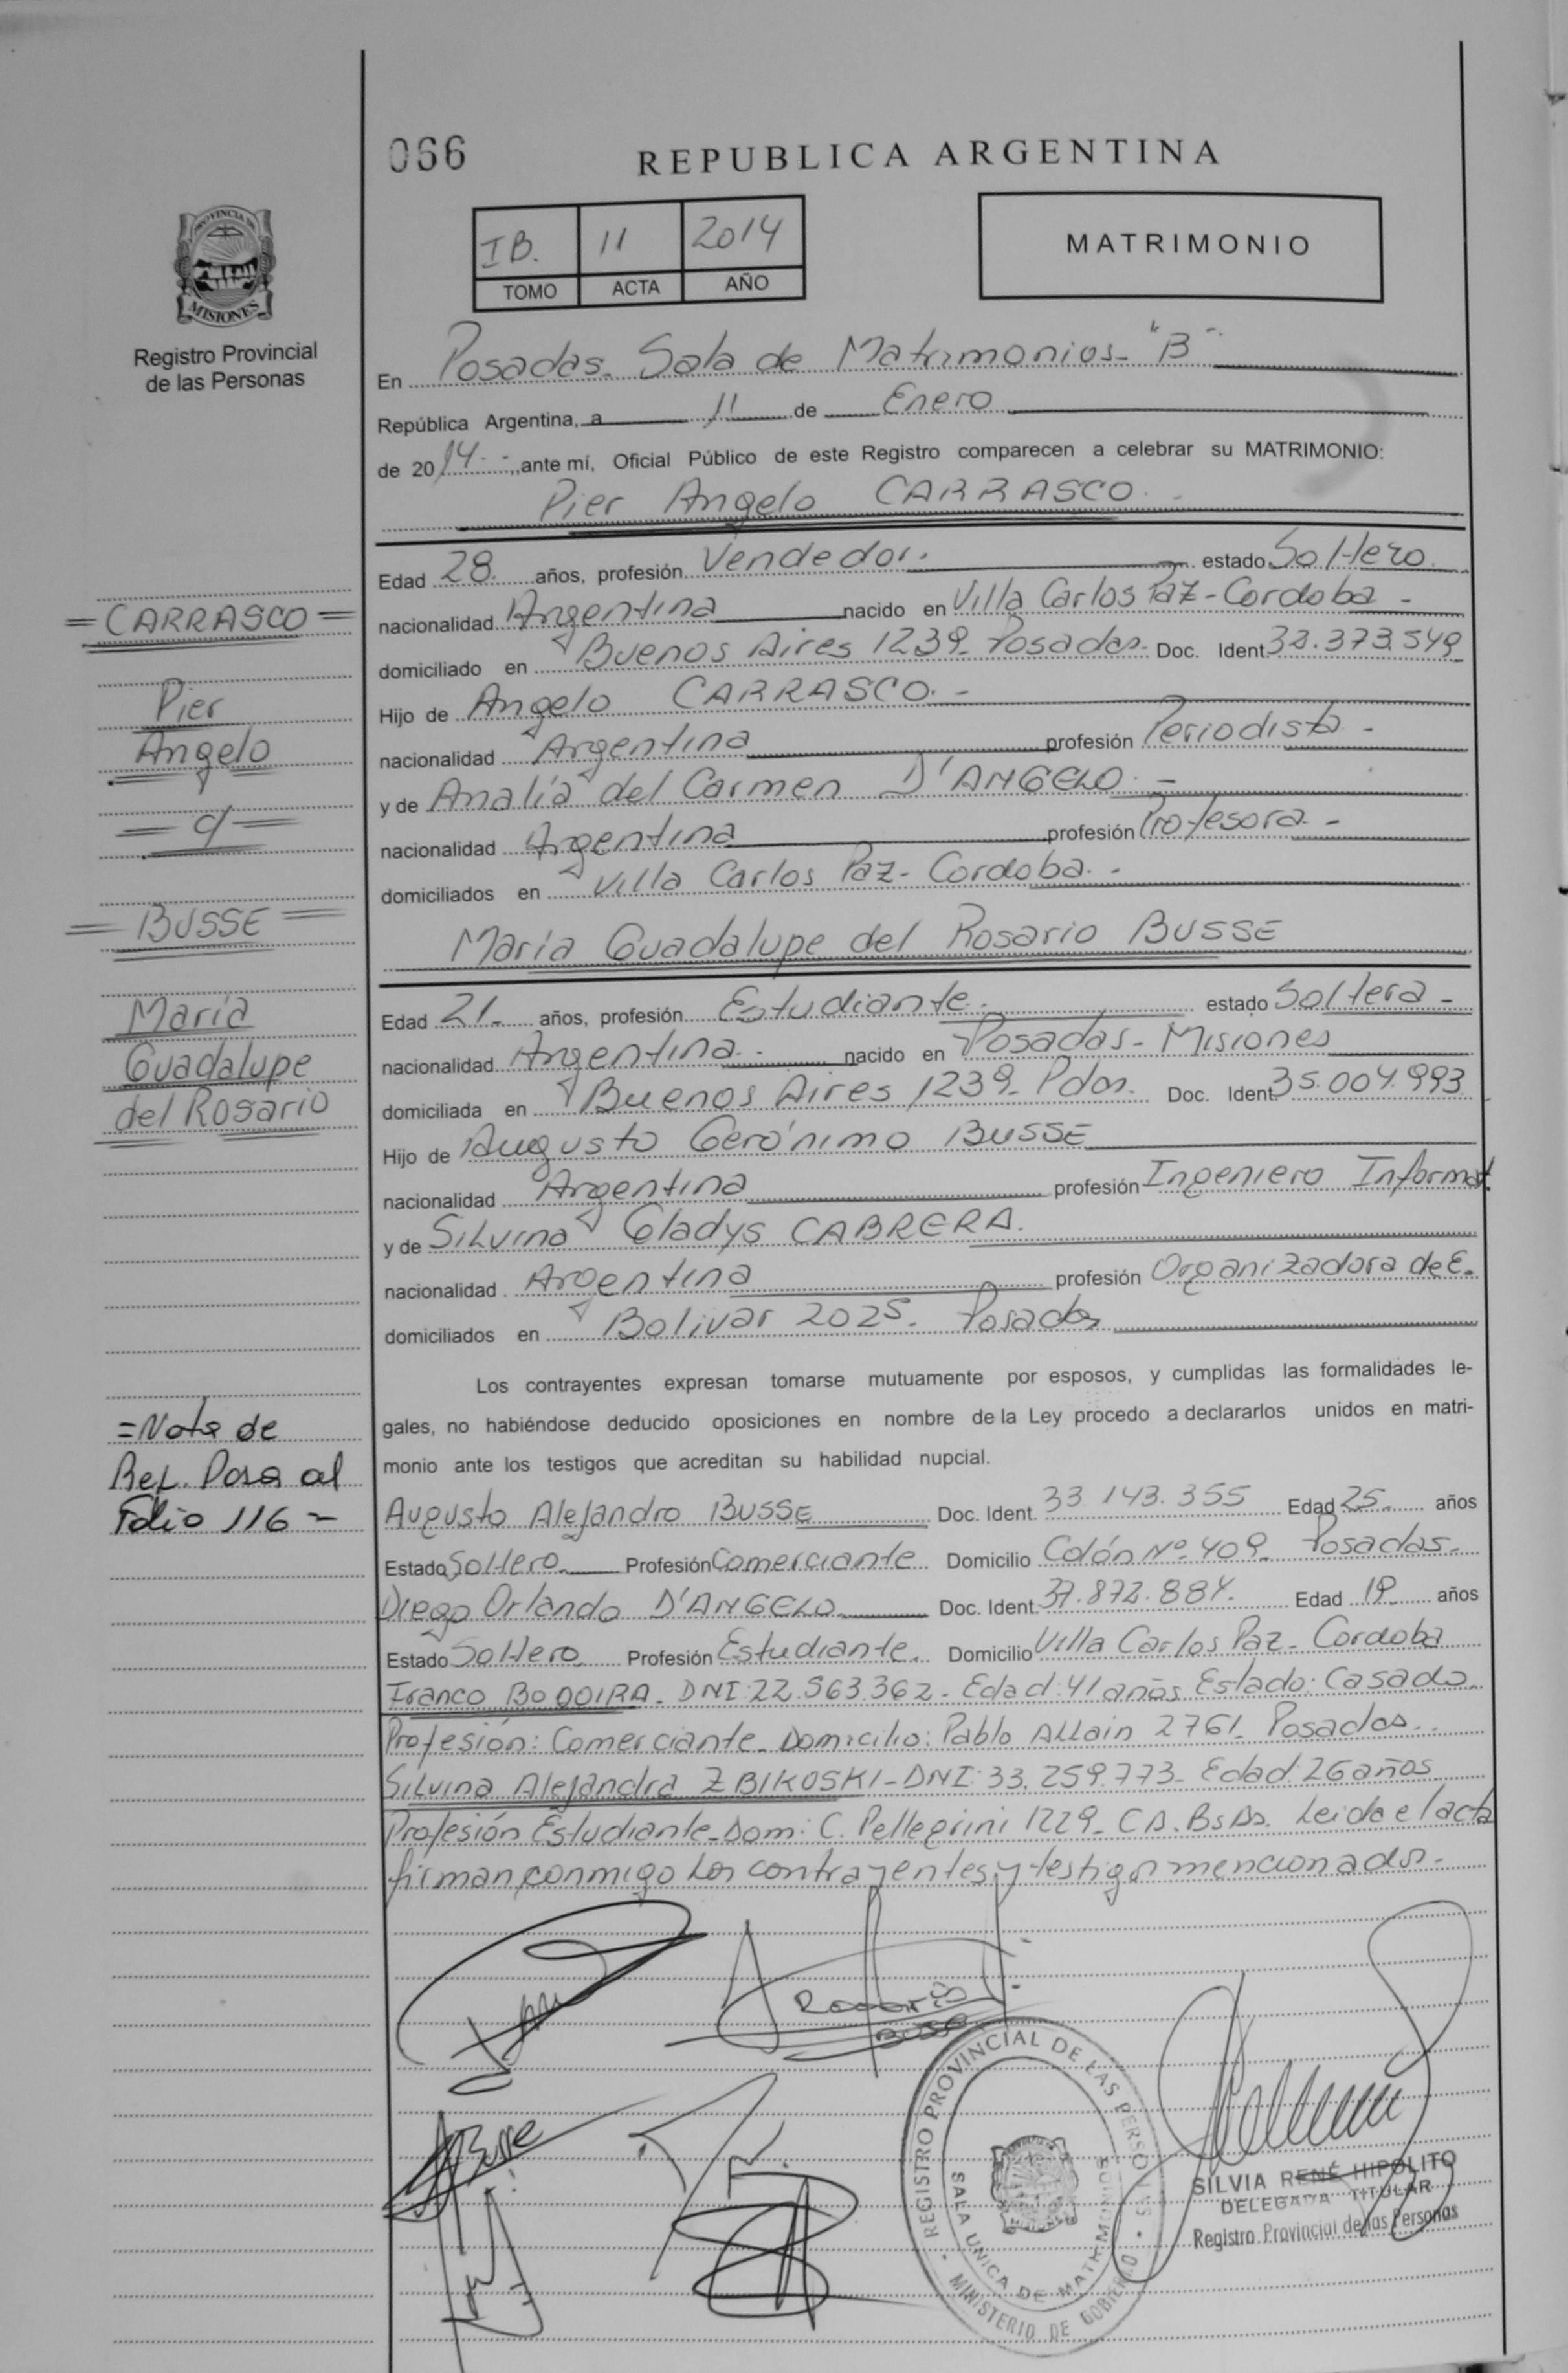 066
REPUBLICA ARGENTINA
PROVINCIA DE
MISIONES
Registro Provincial
de las Personas
IB. 11 2014
TOMO ACTA AÑO
MATRIMONIO
En Posadas. Sala de Matrimonios- "B"
República Argentina, a 11 de Enero
de 2014.- ,ante mí, Oficial Público de este Registro comparecen a celebrar su MATRIMONIO:
Pier Angelo CARRASCO. -
Edad 28. años, profesión Vendedor. estado Soltero.
nacionalidad Argentina nacido en Villa Carlos Paz - Cordoba -
domiciliado en Buenos Aires 1239- Posadas- Doc. Ident 32.373.549
Hijo de Angelo CARRASCO. -
nacionalidad Argentina profesión Periodista -
y de Analía del Carmen D'ANGELO. -
nacionalidad Argentina profesión Profesora. -
domiciliados en Villa Carlos Paz - Cordoba. -
María Guadalupe del Rosario BUSSE
Edad 21.- años, profesión Estudiante. estado Soltera -
nacionalidad Argentina. - nacido en Posadas - Misiones
domiciliada en Buenos Aires 1239- Pdas. Doc. Ident 35.004.993
Hijo de Augusto Gerónimo BUSSE
nacionalidad Argentina profesión Ingeniero Informat.
y de Silvina Gladys CABRERA.
nacionalidad Argentina profesión Organizadora de E.
domiciliados en Bolivar 2025. Posadas
Los contrayentes expresan tomarse mutuamente por esposos, y cumplidas las formalidades le-
gales, no habiéndose deducido oposiciones en nombre de la Ley procedo a declararlos unidos en matri-
monio ante los testigos que acreditan su habilidad nupcial.
Augusto Alejandro BUSSE Doc. Ident. 33.143.355 Edad 25. años
Estado Soltero. Profesión Comerciante Domicilio Colón Nº 409- Posadas.
Diego Orlando D'ANGELO Doc. Ident. 37.872.884. Edad 19 años
Estado Soltero Profesión Estudiante. Domicilio Villa Carlos Paz - Cordoba
Franco BOQOIRA. DNI: 22.563.362 - Edad: 41 años Estado: Casado.
Profesión: Comerciante- Domicilio: Pablo Allain 2761- Posadas.
Silvina Alejandra ZBIKOSKI - DNI: 33.259.773- Edad: 26 años
Profesión Estudiante- Dom: C. Pellegrini 1229- CA. BsAs. Leida el acta
firman conmigo los contrayentes y testigos mencionados.-
= CARRASCO =
Pier
Angelo
= c/ =
= BUSSE =
María
Guadalupe
del Rosario
= Nota de
Ref. Pasa al
Folio 116 -
Rosario
Busse
Busse
REGISTRO PROVINCIAL DE LAS PERSONAS
SALA UNICA DE MATRIMONIOS
MINISTERIO DE GOBIERNO
SILVIA RENÉ HIPOLITO
DELEGADA TITULAR
Registro Provincial de las Personas